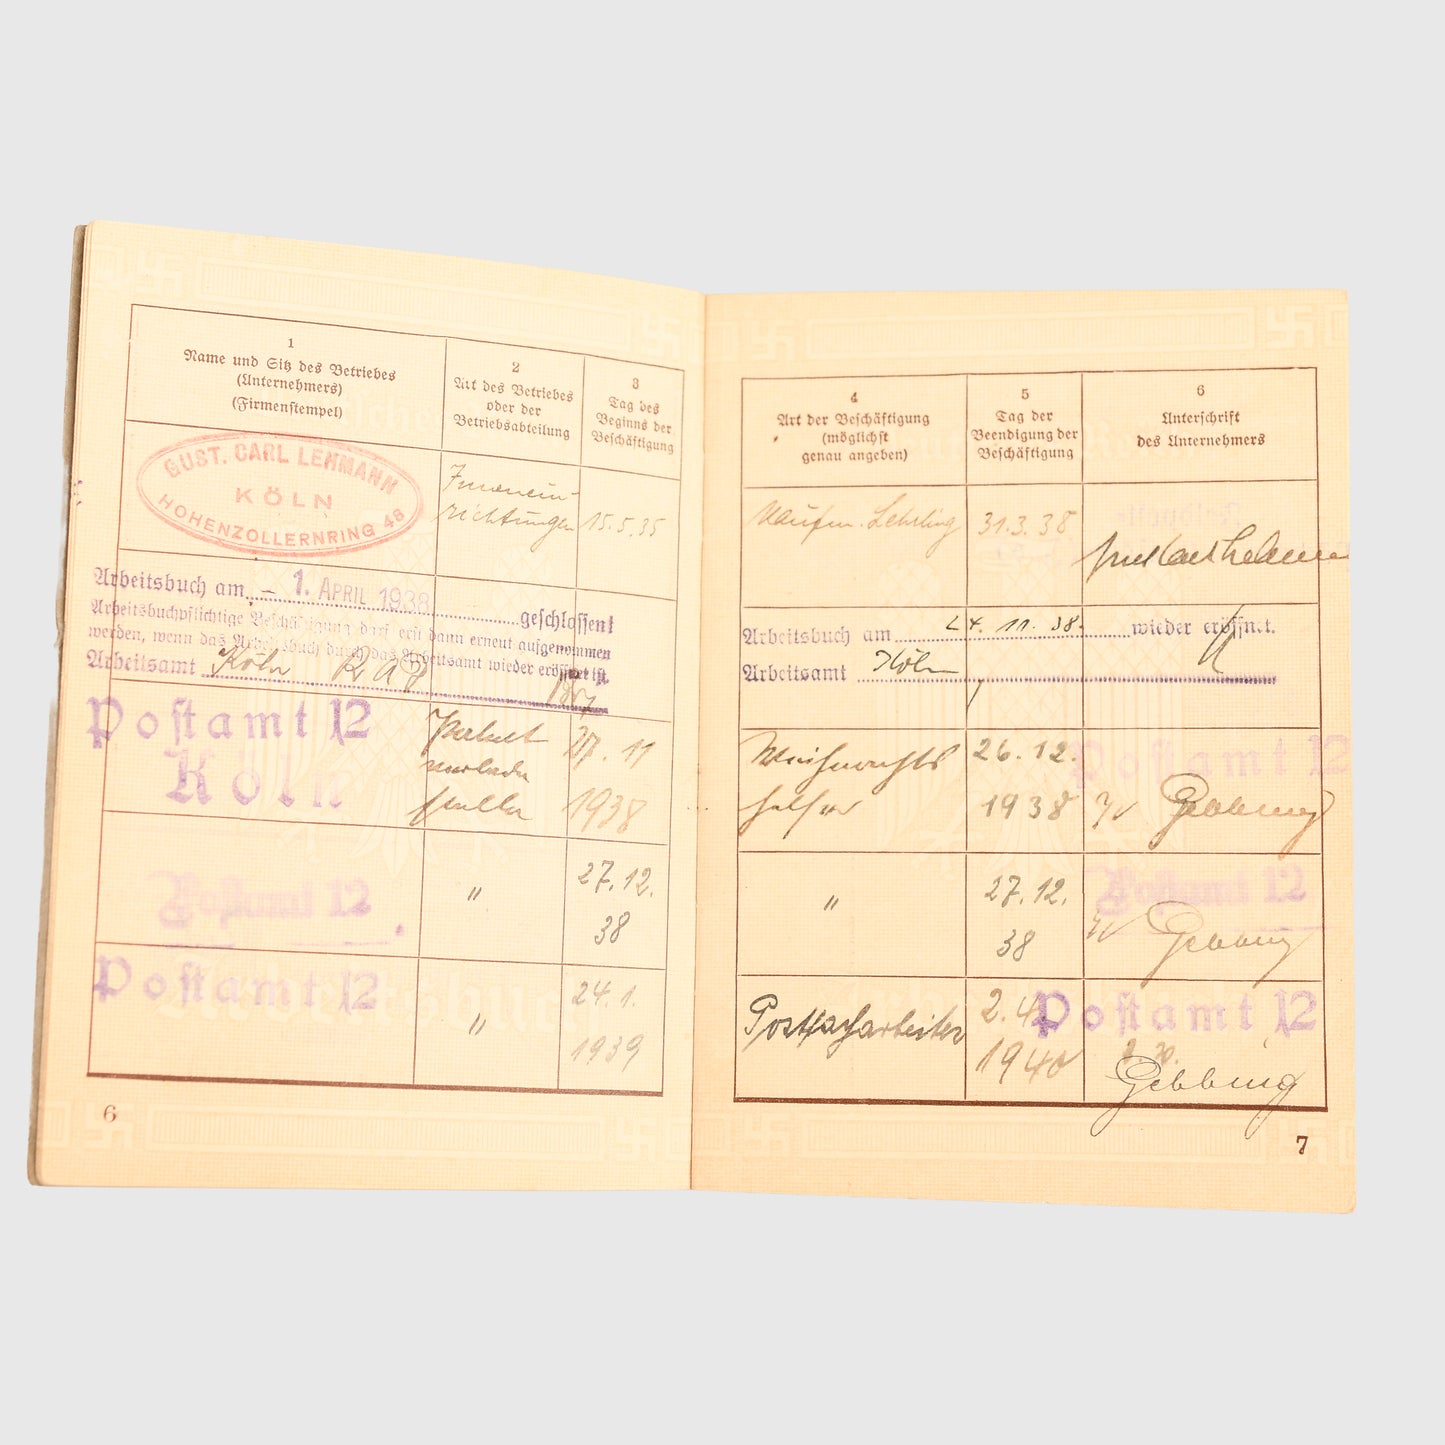 1
Name und Sitz des Betriebes
(Unternehmers)
(Firmenstempel)
2
Art des Betriebes
oder der
Betriebsabteilung
3
Tag des
Beginns der
Beschäftigung
GUST. CARL LEHMANN
KÖLN
HOHENZOLLERNRING 48
Innenein-
richtungen
15.5.35
Arbeitsbuch am - 1. APRIL 1938 geschlossen!
Arbeitsbuchpflichtige Beschäftigung darf erst dann erneut aufgenommen
werden, wenn das Arbeitsbuch durch das Arbeitsamt wieder eröffnet ist.
Arbeitsamt Köln
Postamt 12
Köln
Paket
27. 11
1938
Postamt 12
"
27.12.
38
Postamt 12
"
24.1.
1939
6
4
Art der Beschäftigung
(möglichst
genau angeben)
5
Tag der
Beendigung der
Beschäftigung
6
Unterschrift
des Unternehmers
Kaufm. Lehrling
31.3.38
Arbeitsbuch am 24. 11. 38. wieder eröffnet.
Arbeitsamt Köln
Weihnachts
helfer
26.12.
1938
Postamt 12
Gebbing
"
27.12.
38
Postamt 12
Gebbing
Postfacharbeiter
2.4.
1940
Postamt 12
Gebbing
7